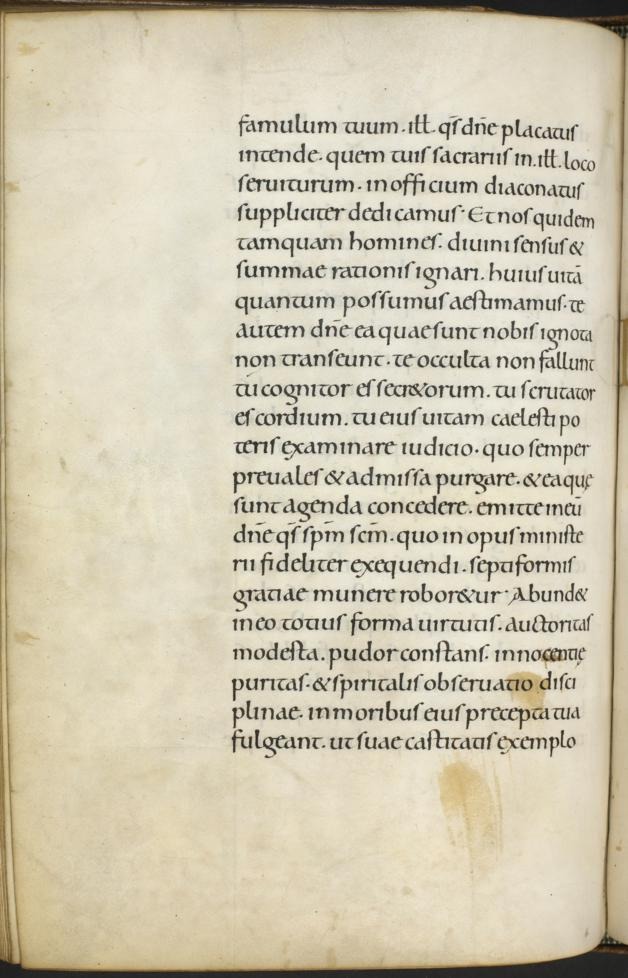 famulum tuum · ill̅ · qs̅ dn̅e placatus
intende · quem tuis sacrariis in · ill̅ · loco
seruiturum · in officium diaconatus
suppliciter dedicamus · Et nos quidem
tamquam homines · diuini sensus &
summae rationis ignari · huius uitā
quantum possumus aestimamus · te
autem dn̅e ea quae sunt nobis ignota
non transeunt · te occulta non fallunt
tu cognitor es secr&orum · tu scrutator
es cordium · tu eius uitam caelesti po
teris examinare iudicio · quo semper
preuales & admissa purgare · & ea quę
sunt agenda concedere · emitte in eū
dn̅e qs̅ sp̅m sc̅m · quo in opus ministe
rii fideliter exequendi · septiformis
gratiae munere robor&ur · Abund&
in eo totius forma uirtutis · auctoritas
modesta · pudor constans · innocentię
puritas · & spiritalis obseruatio disci
plinae · in moribus eius precepta tua
fulgeant · ut suae castitatis exemplo